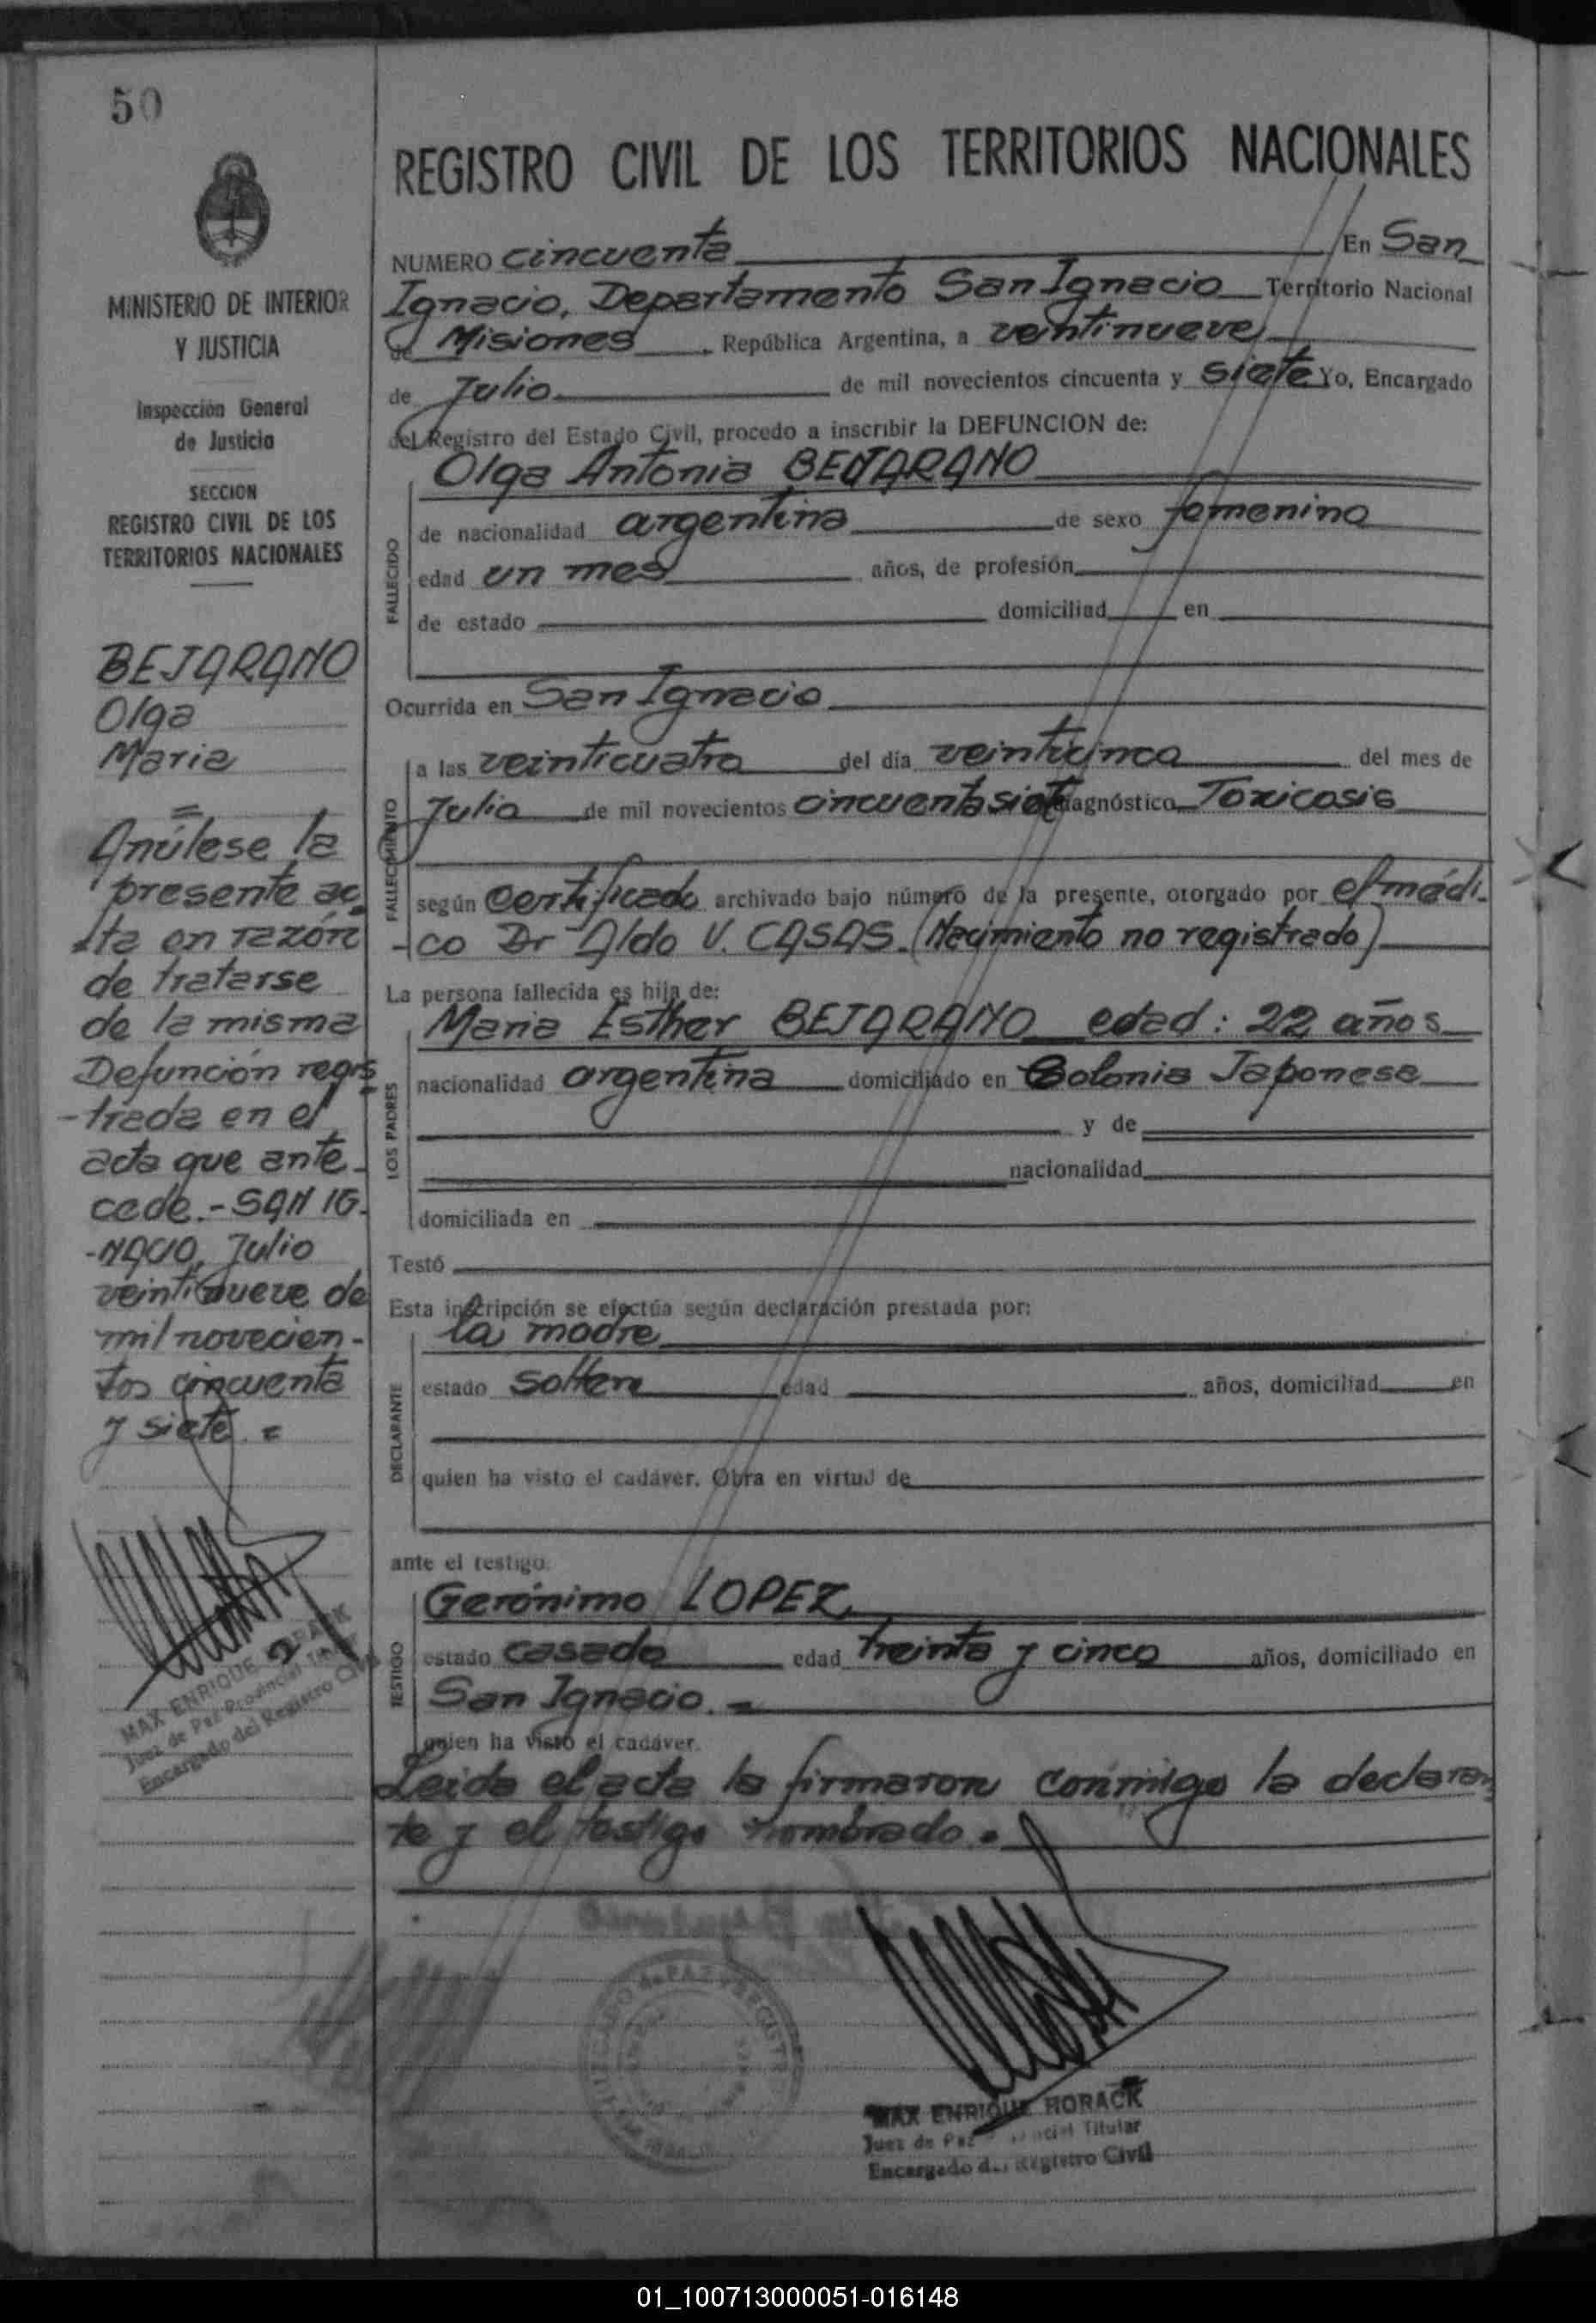 50
MINISTERIO DE INTERIOR
Y JUSTICIA
Inspección General
de Justicia
SECCION
REGISTRO CIVIL DE LOS
TERRITORIOS NACIONALES
BEJARANO
Olga
Maria
=
Anúlese la
presente ac
-ta en razón
de tratarse
de la misma
Defunción regis
-trada en el
acta que ante-
cede.- SAN IG-
-NACIO, Julio
veintinueve de
mil novecien-
tos cincuenta
y siete. =
MAX ENRIQUE HORACK
Juez de Paz Provincial Titular
Encargado del Registro Civil
REGISTRO CIVIL DE LOS TERRITORIOS NACIONALES
NUMERO cincuenta En San
Ignacio, Departamento San Ignacio Territorio Nacional
de Misiones, República Argentina, a veintinueve
de Julio de mil novecientos cincuenta y siete Yo, Encargado
del Registro del Estado Civil, procedo a inscribir la DEFUNCION de:
Olga Antonia BEJARANO
FALLECIDO
de nacionalidad argentina de sexo femenino
edad un mes años, de profesión
de estado domiciliad en
Ocurrida en San Ignacio
FALLECIMIENTO
a las veinticuatro del día veinticinco del mes de
Julio de mil novecientos cincuenta siete diagnóstico Toxicosis
según certificado archivado bajo número de la presente, otorgado por el médi-
-co Dr Aldo V. CASAS. (Nacimiento no registrado)
La persona fallecida es hija de:
LOS PADRES
Maria Esther BEJARANO edad: 22 años
nacionalidad argentina domiciliado en Colonia Japonesa
y de
nacionalidad
domiciliada en
Testó
Esta inscripción se efectúa según declaración prestada por:
DECLARANTE
la madre
estado soltera edad años, domiciliad en
quien ha visto el cadáver. Obra en virtud de
ante el testigo:
TESTIGO
Gerónimo LOPEZ
estado casado edad treinta y cinco años, domiciliado en
San Ignacio. =
quien ha visto el cadáver.
Leida el acta la firmaron conmigo la declaran
te y el testigo nombrado.
MAX ENRIQUE HORACK
Juez de Paz Provincial Titular
Encargado del Registro Civil
01_100713000051-016148